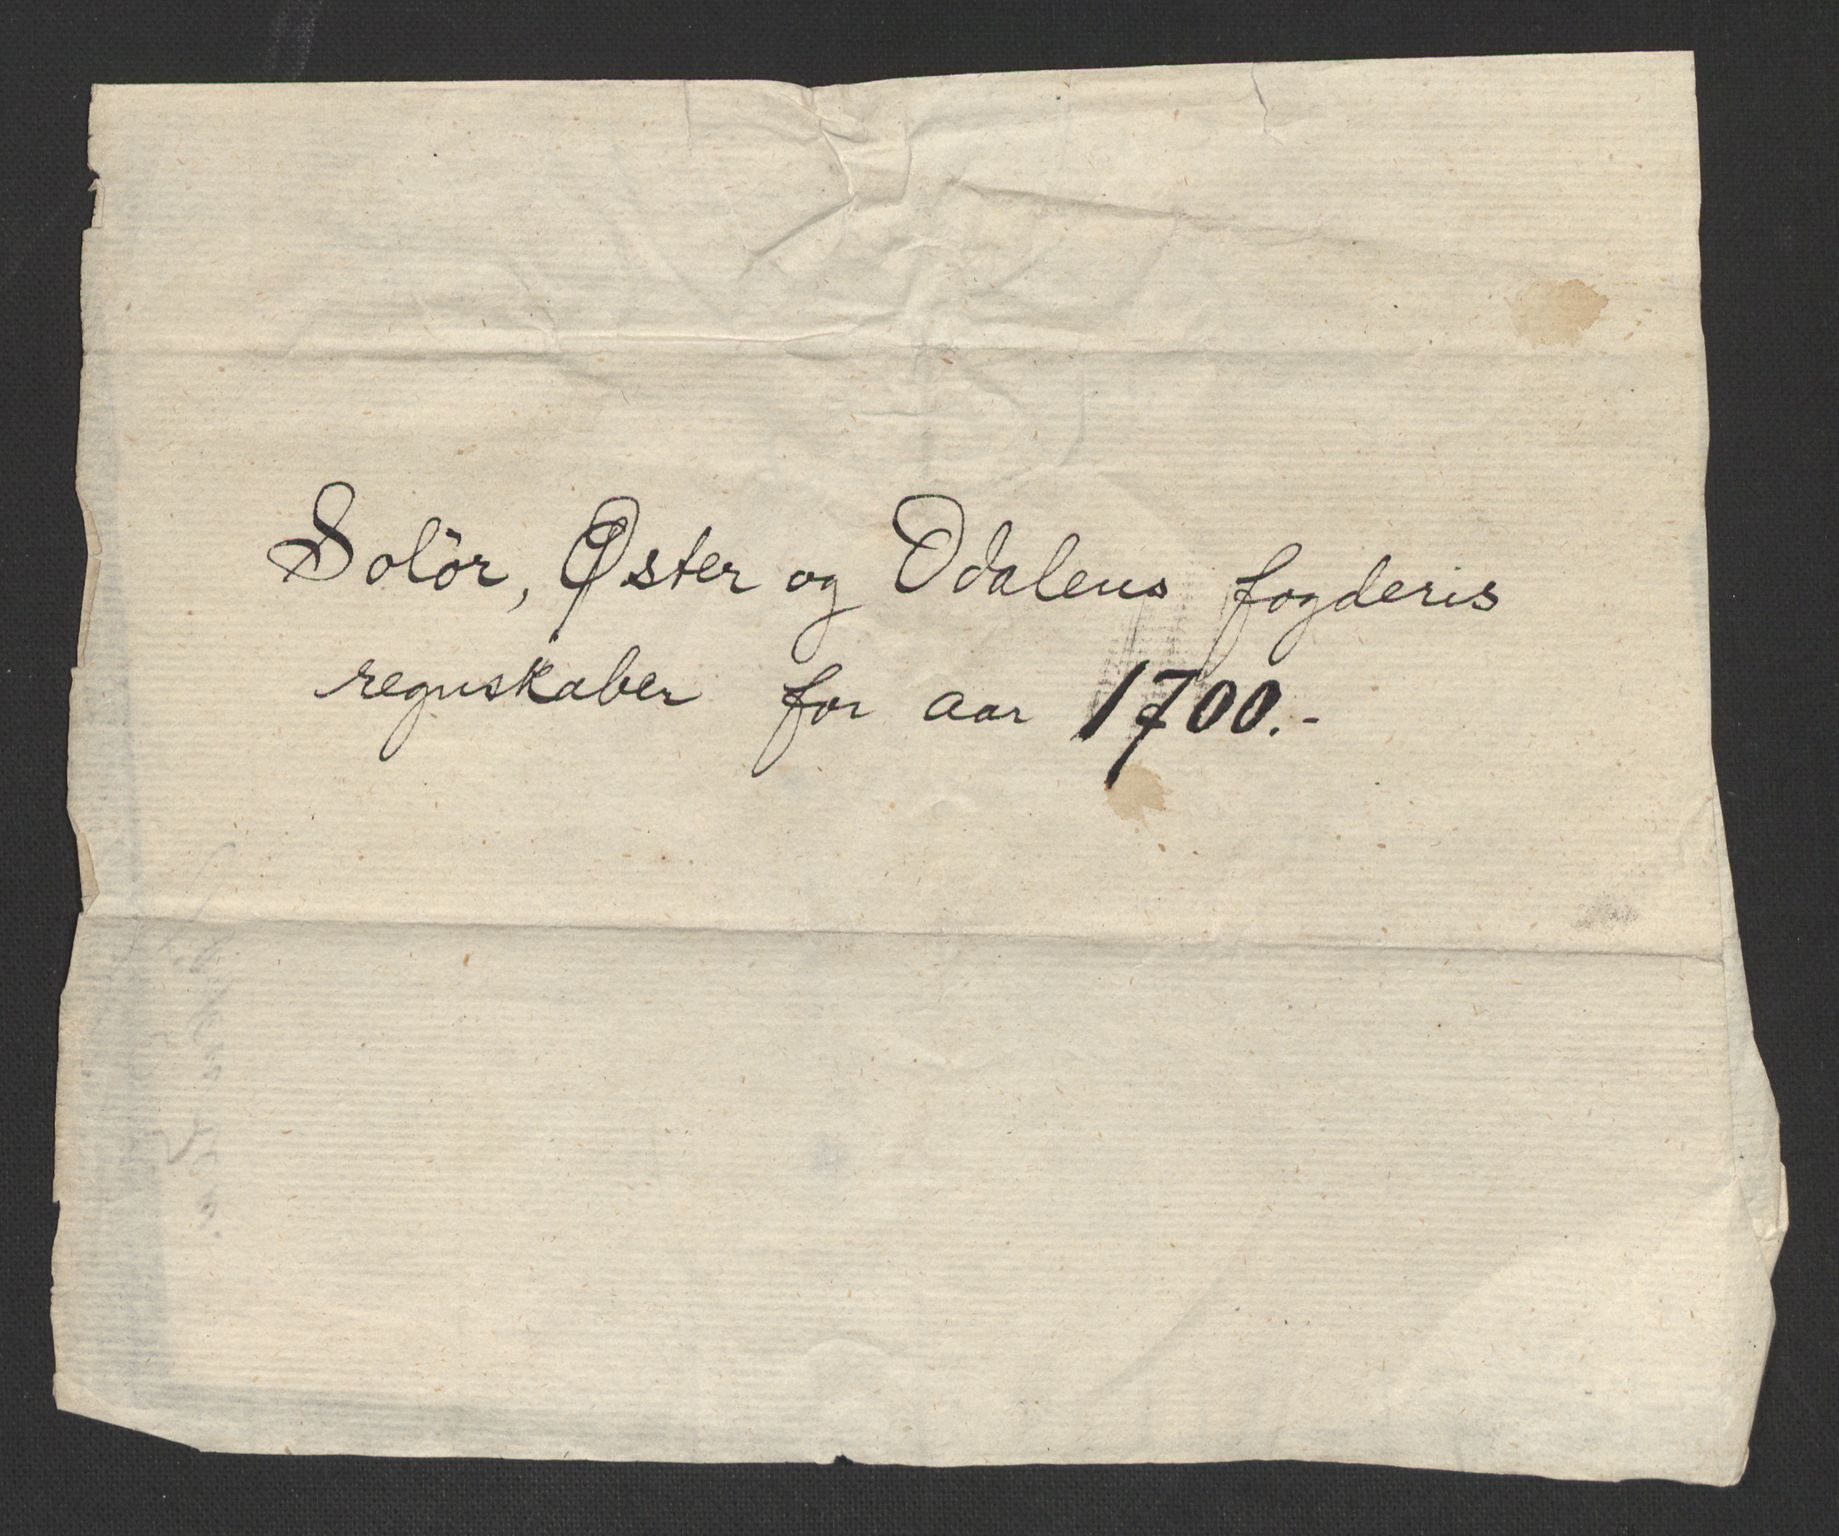 Solör, Øster og Odalens fogderis
regnskaber for aar 1700.-